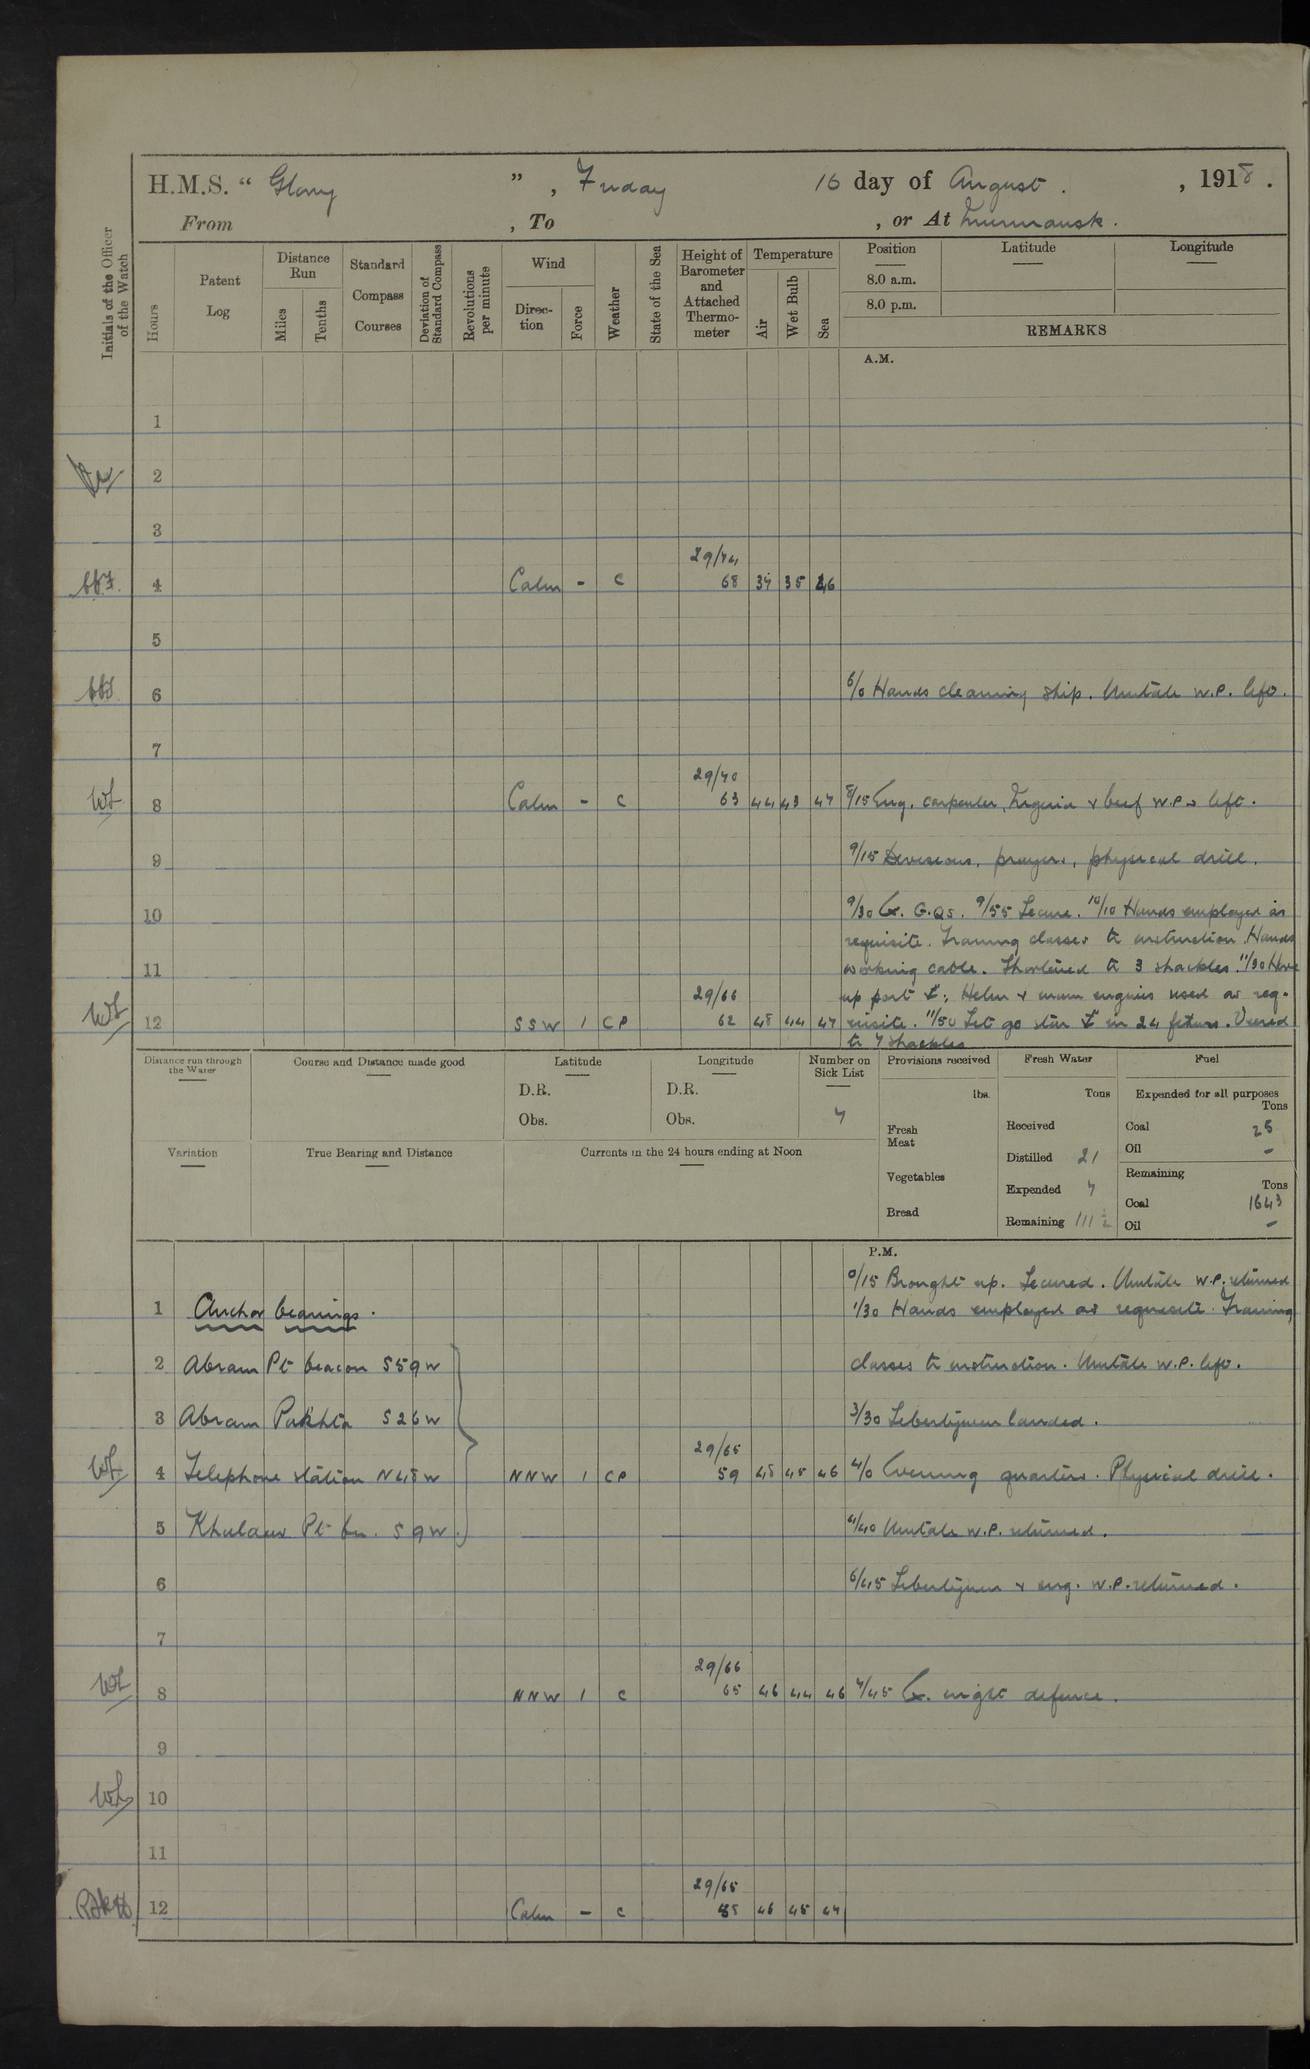 H.M.S. “ Glory ” , Friday 16 day of August . , 1918 .
From , To , or At Murmansk .
Initials of the Officer of the Watch
Hours
Patent Log
Distance Run
Miles
Tenths
Standard Compass Courses
Deviation of Standard Compass
Revolutions per minute
Wind
Direc-tion
Force
Weather
State of the Sea
Height of Barometer and Attached Thermo-meter
Temperature
Air
Wet Bulb
Sea
Position
Latitude
Longitude
8.0 a.m.
8.0 p.m.
REMARKS
A.M.
1
2
3
29/74
4 Calm - c 68 34 35 46
5
6 6/0 Hands cleaning ship. Umtali W.P. left.
7
29/70
8 Calm - c 63 44 43 47 8/15 Eng. carpenter, & beef W.P.s left.
9 9/15 Divisions, prayers, physical drill.
10 9/30 Ex. G.Qs. 9/55 Secure. 10/10 Hands employed as
requisite. Training classes to instruction. Hands
11 working cable. Shortened to 3 shackles. 11/30 Hove
29/66 up port ⚓; Helm & main engines used as req-
12 SSW 1 CP 62 48 44 47 uisite. 11/50 Let go star ⚓ in 24 fathoms. Veered
to 7 shackles
Distance run through the Water
Course and Distance made good
Latitude
D.R.
Obs.
Longitude
D.R.
Obs.
Number on Sick List
7
Provisions received
lbs.
Fresh Meat
Vegetables
Bread
Fresh Water
Tons
Received
Distilled 21
Expended 7
Remaining 111 ½
Fuel
Expended for all purposes
Tons
Coal 25
Oil -
Remaining
Tons
Coal 1643
Oil -
Variation
True Bearing and Distance
Currents in the 24 hours ending at Noon
P.M.
0/15 Brought up. Secured. Umtali W.P. returned
1 Anchor bearings. 1/30 Hands employed as requisite. Training
2 Abram Pt beacon S59W classes to instruction. Umtali W.P. left.
3 Abram Pakhta S26W 3/30 Libertymen landed.
29/65
4 Telephone station N48W NNW 1 CP 59 48 45 46 4/0 Evening quarters. Physical drill.
5 Pt bn. S9W. 4/40 Umtali W.P. returned.
6 6/45 Libertymen & eng. W.P. returned.
7
29/66
8 NNW 1 c 65 46 44 46 7/45 Ex. night defence.
9
10
11
29/65
12 Calm - c 46 45 47